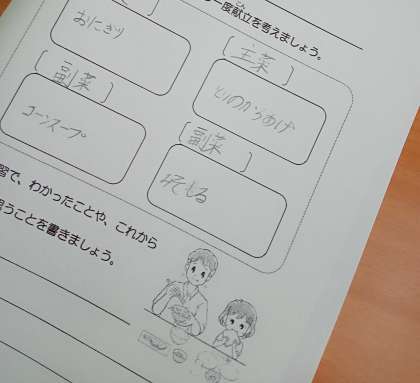 一度献立を考えましょう。
おにぎり
〔主菜〕
とりのからあげ
〔副菜〕
コーンスープ
〔副菜〕
みそしる
習で、わかったことや、これから
思うことを書きましょう。